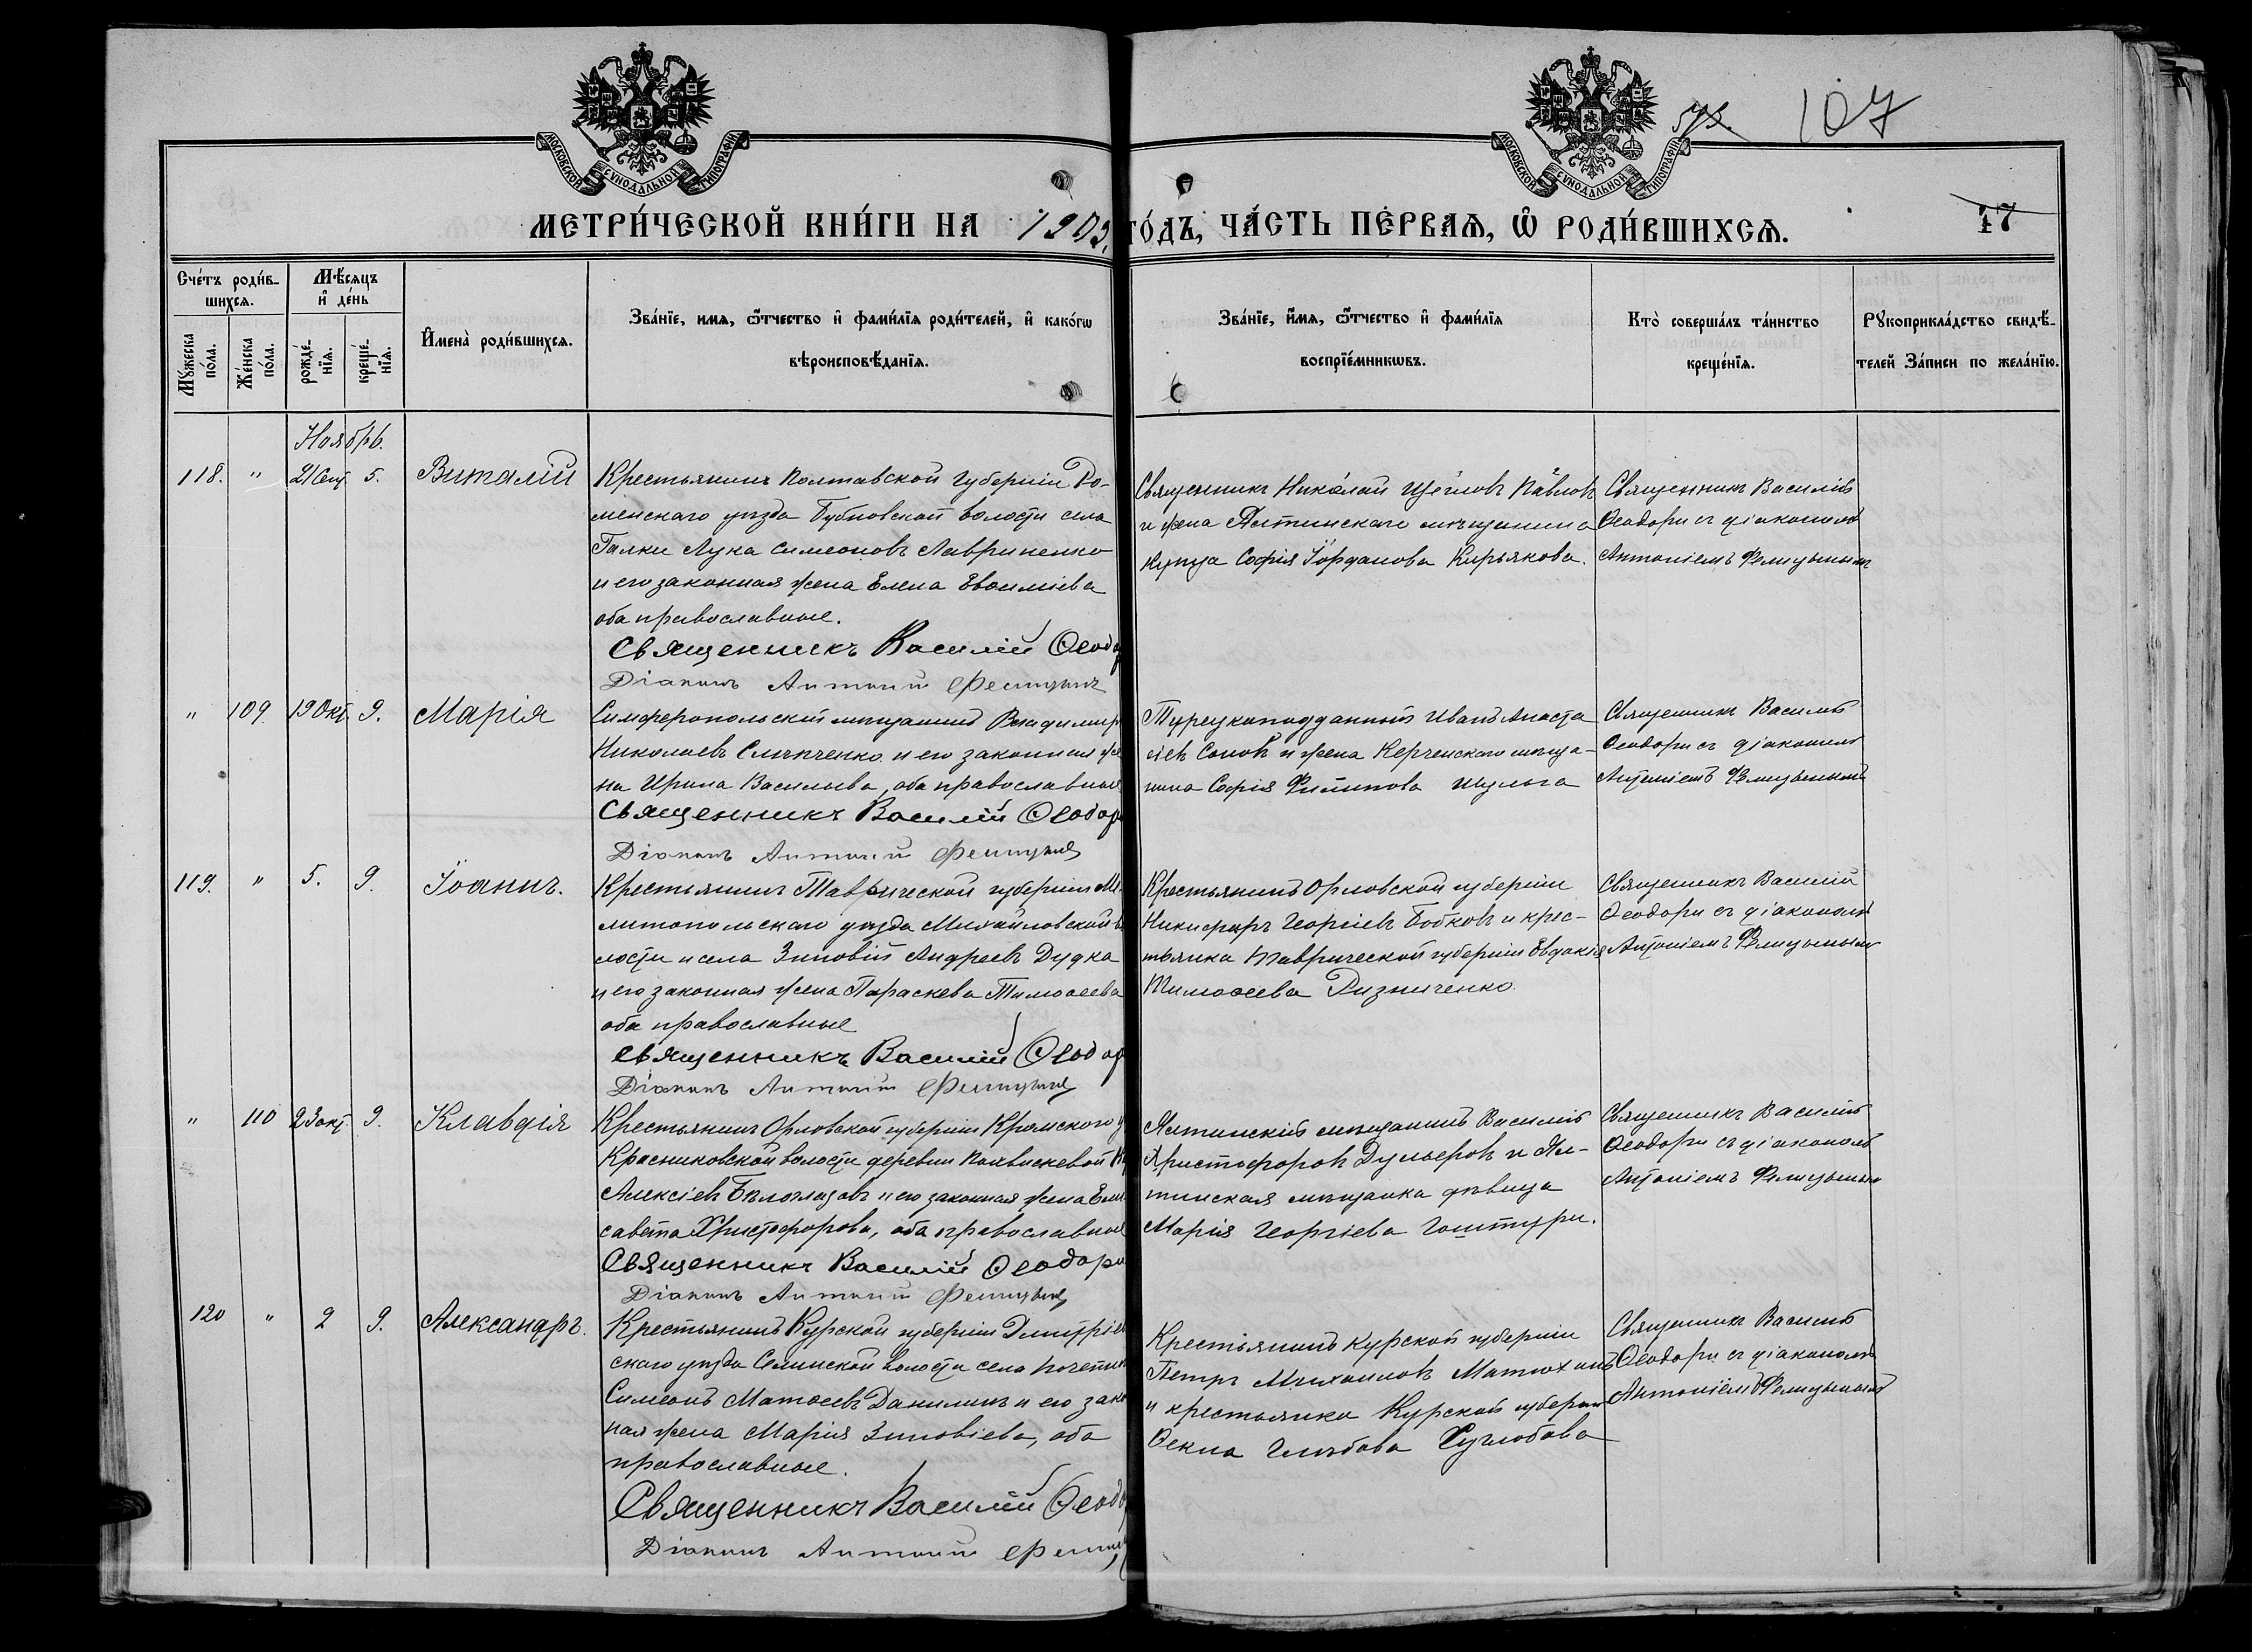 МОСКОВСКОЙ СѴНОДАЛЬНОЙ ТИПОГРАФІИ
МОСКОВСКОЙ СѴНОДАЛЬНОЙ ТИПОГРАФІИ
107
МЕТРИ́ЧЕСКОЙ КНИ́ГИ НА 1903. ГО́ДЪ, ЧА́СТЬ ПЕ́РВАѦ, Ѡ҆ РОДИ́ВШИХСѦ.
47
Сче́тъ роди́в-
шихсѧ.
Мѣ́сѧцъ
и҆ де́нь
Мꙋ́жеска
по́ла.
Же́нска
по́ла.
рожде́-
нїѧ.
креще́-
нїѧ.
И҆мена̀ роди́вшихсѧ.
Зва́нїе, имѧ, ѻ҆́тчество и҆ фами́лїѧ роди́телей, и҆ како́гѡ
вѣроисповѣ́данїѧ.
Зва́нїе, и҆́мѧ, ѻ҆́тчество и҆ фами́лїѧ
воспрїе́мникѡвъ.
Кто̀ соверша́лъ та́инство
креще́нїѧ.
Рꙋкоприкла́дство свидѣ́-
телей За́писи по жела́нїю.
Ноябрь.
118. " 21 Сент. 5. Виталій
Крестьянинъ Полтавской губерніи Ро-
менскаго уѣзда Бубновской волости села
Галки Лука Симеоновъ Лавриненко
и его законная жена Елена Евсиліева
оба православные.
Священникъ Василій Ѳеодо
Діаконъ Антоній
Священникъ Николай Щегловъ Павловъ
и жена Ялтинскаго мѣщанина
купца Софія Іорданова Кирьякова.
Священникъ Василій
Ѳеодори съ діакономъ
Антоніемъ
" 109 19 Окт. 9. Марія
Симферопольскій мѣщанинъ Владимиръ
Николаевъ Слипченко и его законная же
на Ирина Васильева, оба православные
Священникъ Василій Ѳеодор
Діаконъ Антоній
Турецкоподданный Иванъ Анаста
сіевъ и жена Керченскаго мѣща-
нина Софія Филипова Шульга
Священникъ Василій
Ѳеодори съ діакономъ
Антоніемъ
119. " 5. 9. Іоаннъ.
Крестьянинъ Таврической губерніи Ме
литопольскаго уѣзда Михайловской во
лости и села Зиновій Андреевъ Дудка
и его законная жена Параскева Тимоѳеева
оба православные
Священникъ Василій Ѳеодор
Діаконъ Антоній
Крестьянинъ Орловской губерніи
Никифоръ Георгіевъ Бобковъ и крес-
тьянка Таврической губерніи Евдокія
Тимоѳеева Ризниченко.
Священникъ Василій
Ѳеодори съ діакономъ
Антоніемъ
" 110 23 окт. 9. Клавдія
Крестьянинъ Орловской губерніи Кромскаго у
Красниковской волости деревни
Алексіевъ Бѣлоглазовъ и его законная жена Ели
савета Христофорова, оба православные
Священникъ Василій Ѳеодори
Діаконъ Антоній
Ялтинскій мѣщанинъ Василій
Христофоровъ Дульеровъ и Ял-
тинская мѣщанка дѣвица
Марія Георгіева
Священникъ Василій
Ѳеодори съ діакономъ
Антоніемъ
120 " 2 9. Александръ.
Крестьянинъ Курской губерніи Дмитріев
скаго уѣзда Селинской волости села
Симеонъ Матѳеевъ Данилинъ и его зако
ная жена Марія Зиновіева, оба
православные.
Священникъ Василій Ѳеодо
Діаконъ Антоній
Крестіянинъ Курской губерніи
Петръ Михаиловъ Матюхинъ
и крестьянка Курской губерніи
Ѳекла Глѣбова
Священникъ Василій
Ѳеодори съ діакономъ
Антоніемъ